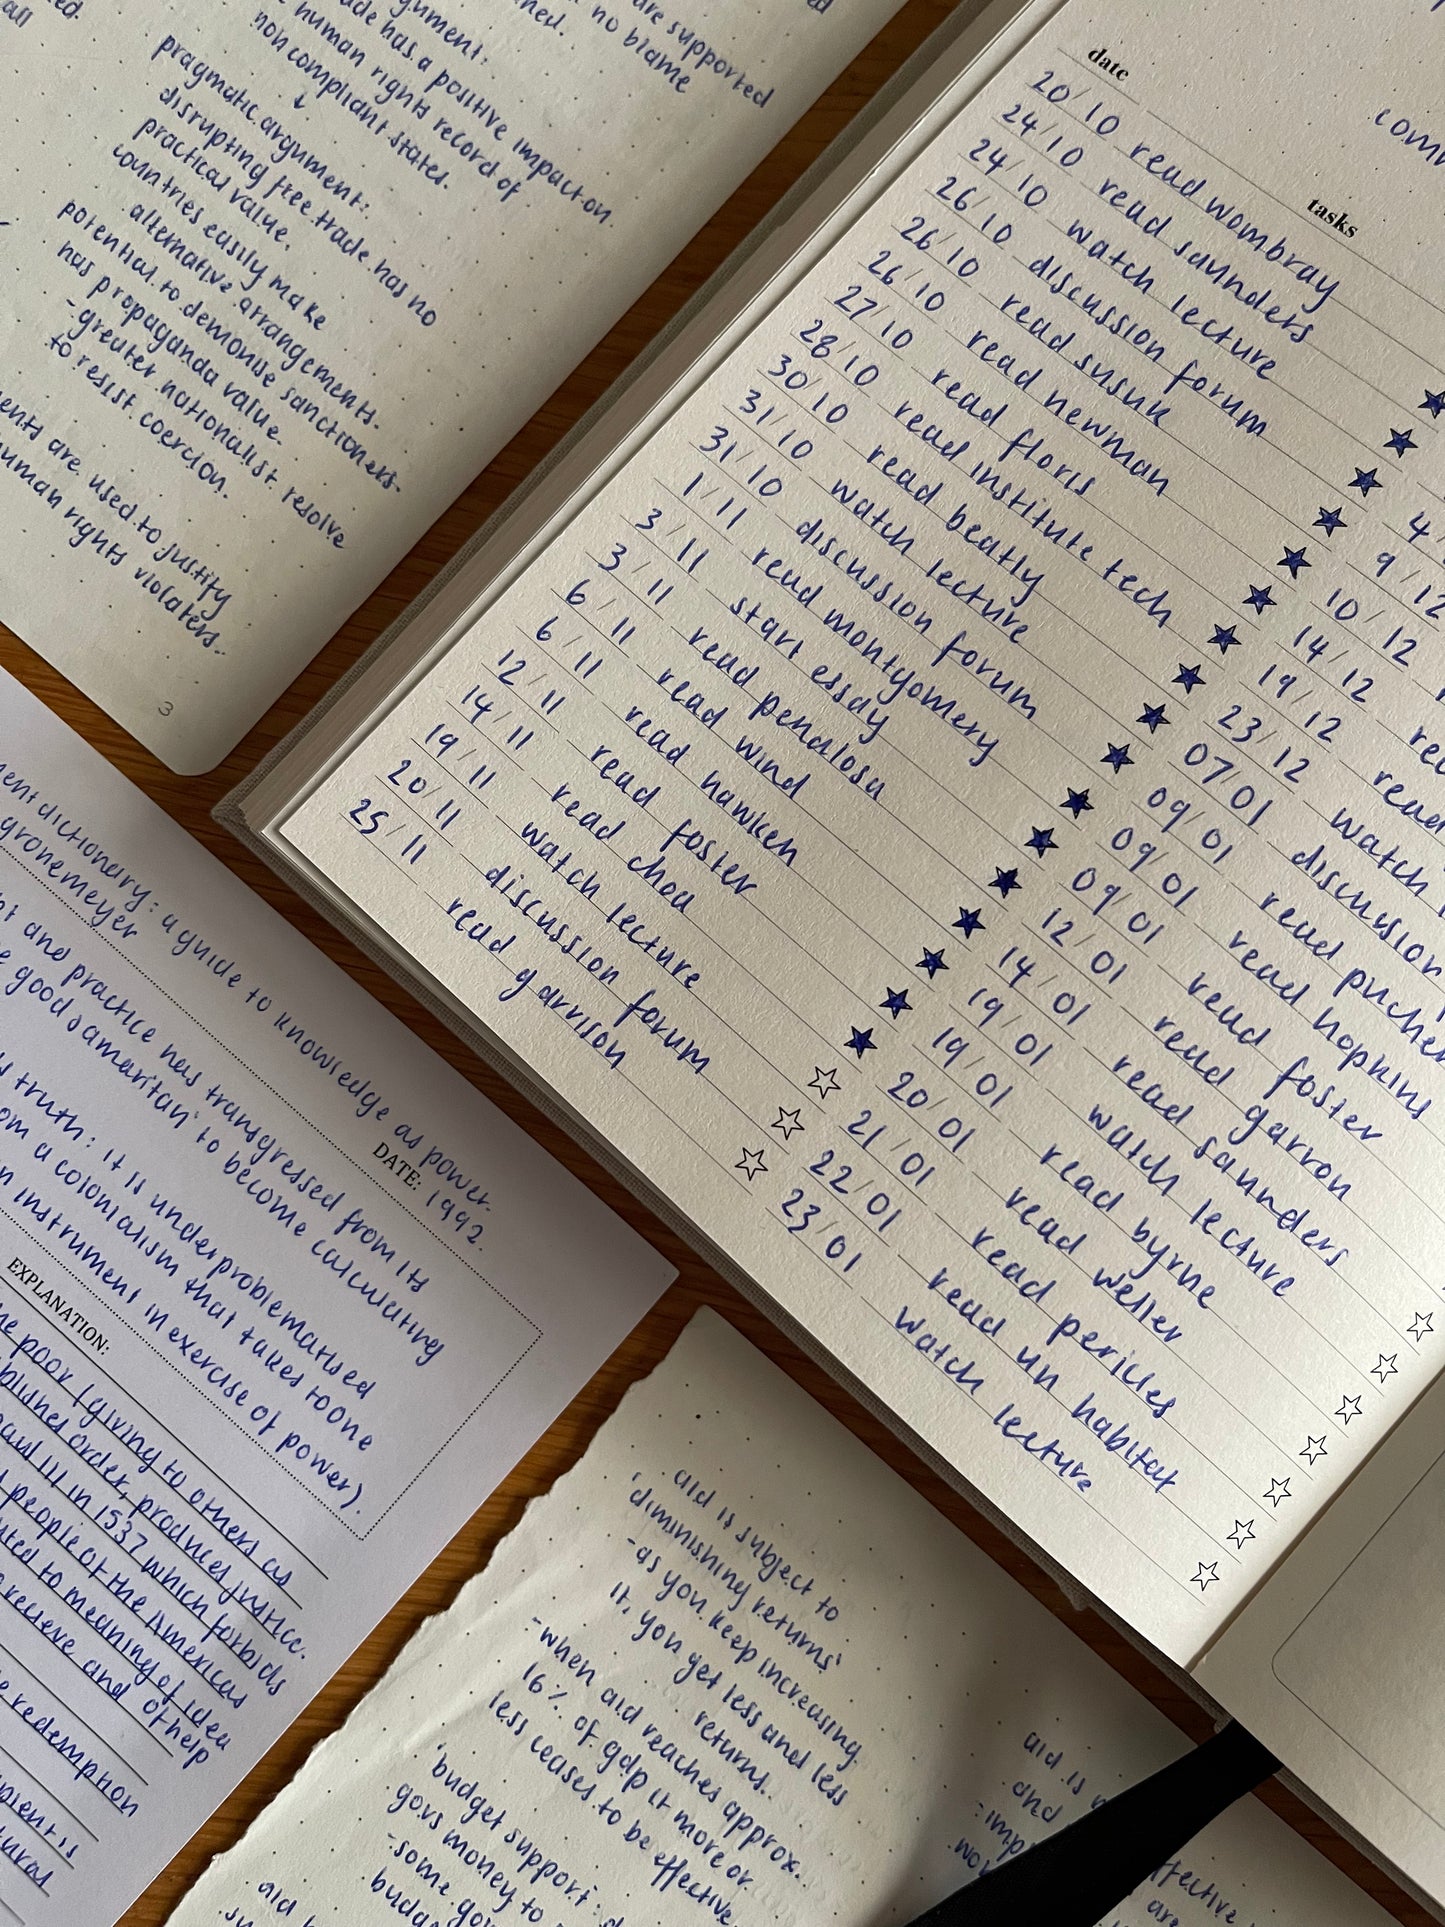 are supported
no blame
rgument:
ade has a positive impact on
human rights record of
non compliant states.
pragmatic argument:
disrupting free trade has no
practical value.
countries easily make
alternative arrangements.
potential to demonise sanctioners.
has propaganda value.
- greater nationalist resolve
to resist coercion.
ents are used to justify
human rights violaters.
3
date
tasks
20/10 read wombray
24/10 read saunders
24/10 watch lecture
26/10 discussion forum
26/10 read susuk
26/10 read newman
27/10 read floris
28/10 read institute tech
30/10 read beatly
31/10 watch lecture
31/10 discussion forum
1/11 read montgomery
3/11 start essay
3/11 read penalosa
6/11 read wind
6/11 read hawken
12/11 read foster
14/11 read choa
19/11 watch lecture
20/11 discussion forum
25/11 read garrison
4/
9/12
10/12
14/12
19/12
23/12 read
07/01 watch
09/01 discussion
09/01 read pucher
09/01 read hopkins
12/01 read foster
14/01 read garron
19/01 read saunders
19/01 watch lecture
20/01 read byrne
21/01 read weller
22/01 read pericles
23/01 read un habitat
watch lecture
ment dictionary: a guide to knowledge as power.
gronemeyer
DATE: 1992.
pt and practice has transgressed from its
good samaritan' to become calculating
truth: it is underproblematised
om a colonialism that takes to one
n instrument in exercise of power).
EXPLANATION:
he poor (giving to others as
blishes order, produces justice.
aul III in 1537 which forbids
people of the Americas
uted to meaning of idea
recieve and of help
redemption
pient is
tural
aid is subject to
'diminishing returns'
-as you keep increasing
it, you get less and less
returns.
-when aid reaches approx.
16% of gdp it more or
less ceases to be effective.
'budget support:
govs money to
-some gov
budg
aid
aid is
and
-imp
ffective
are